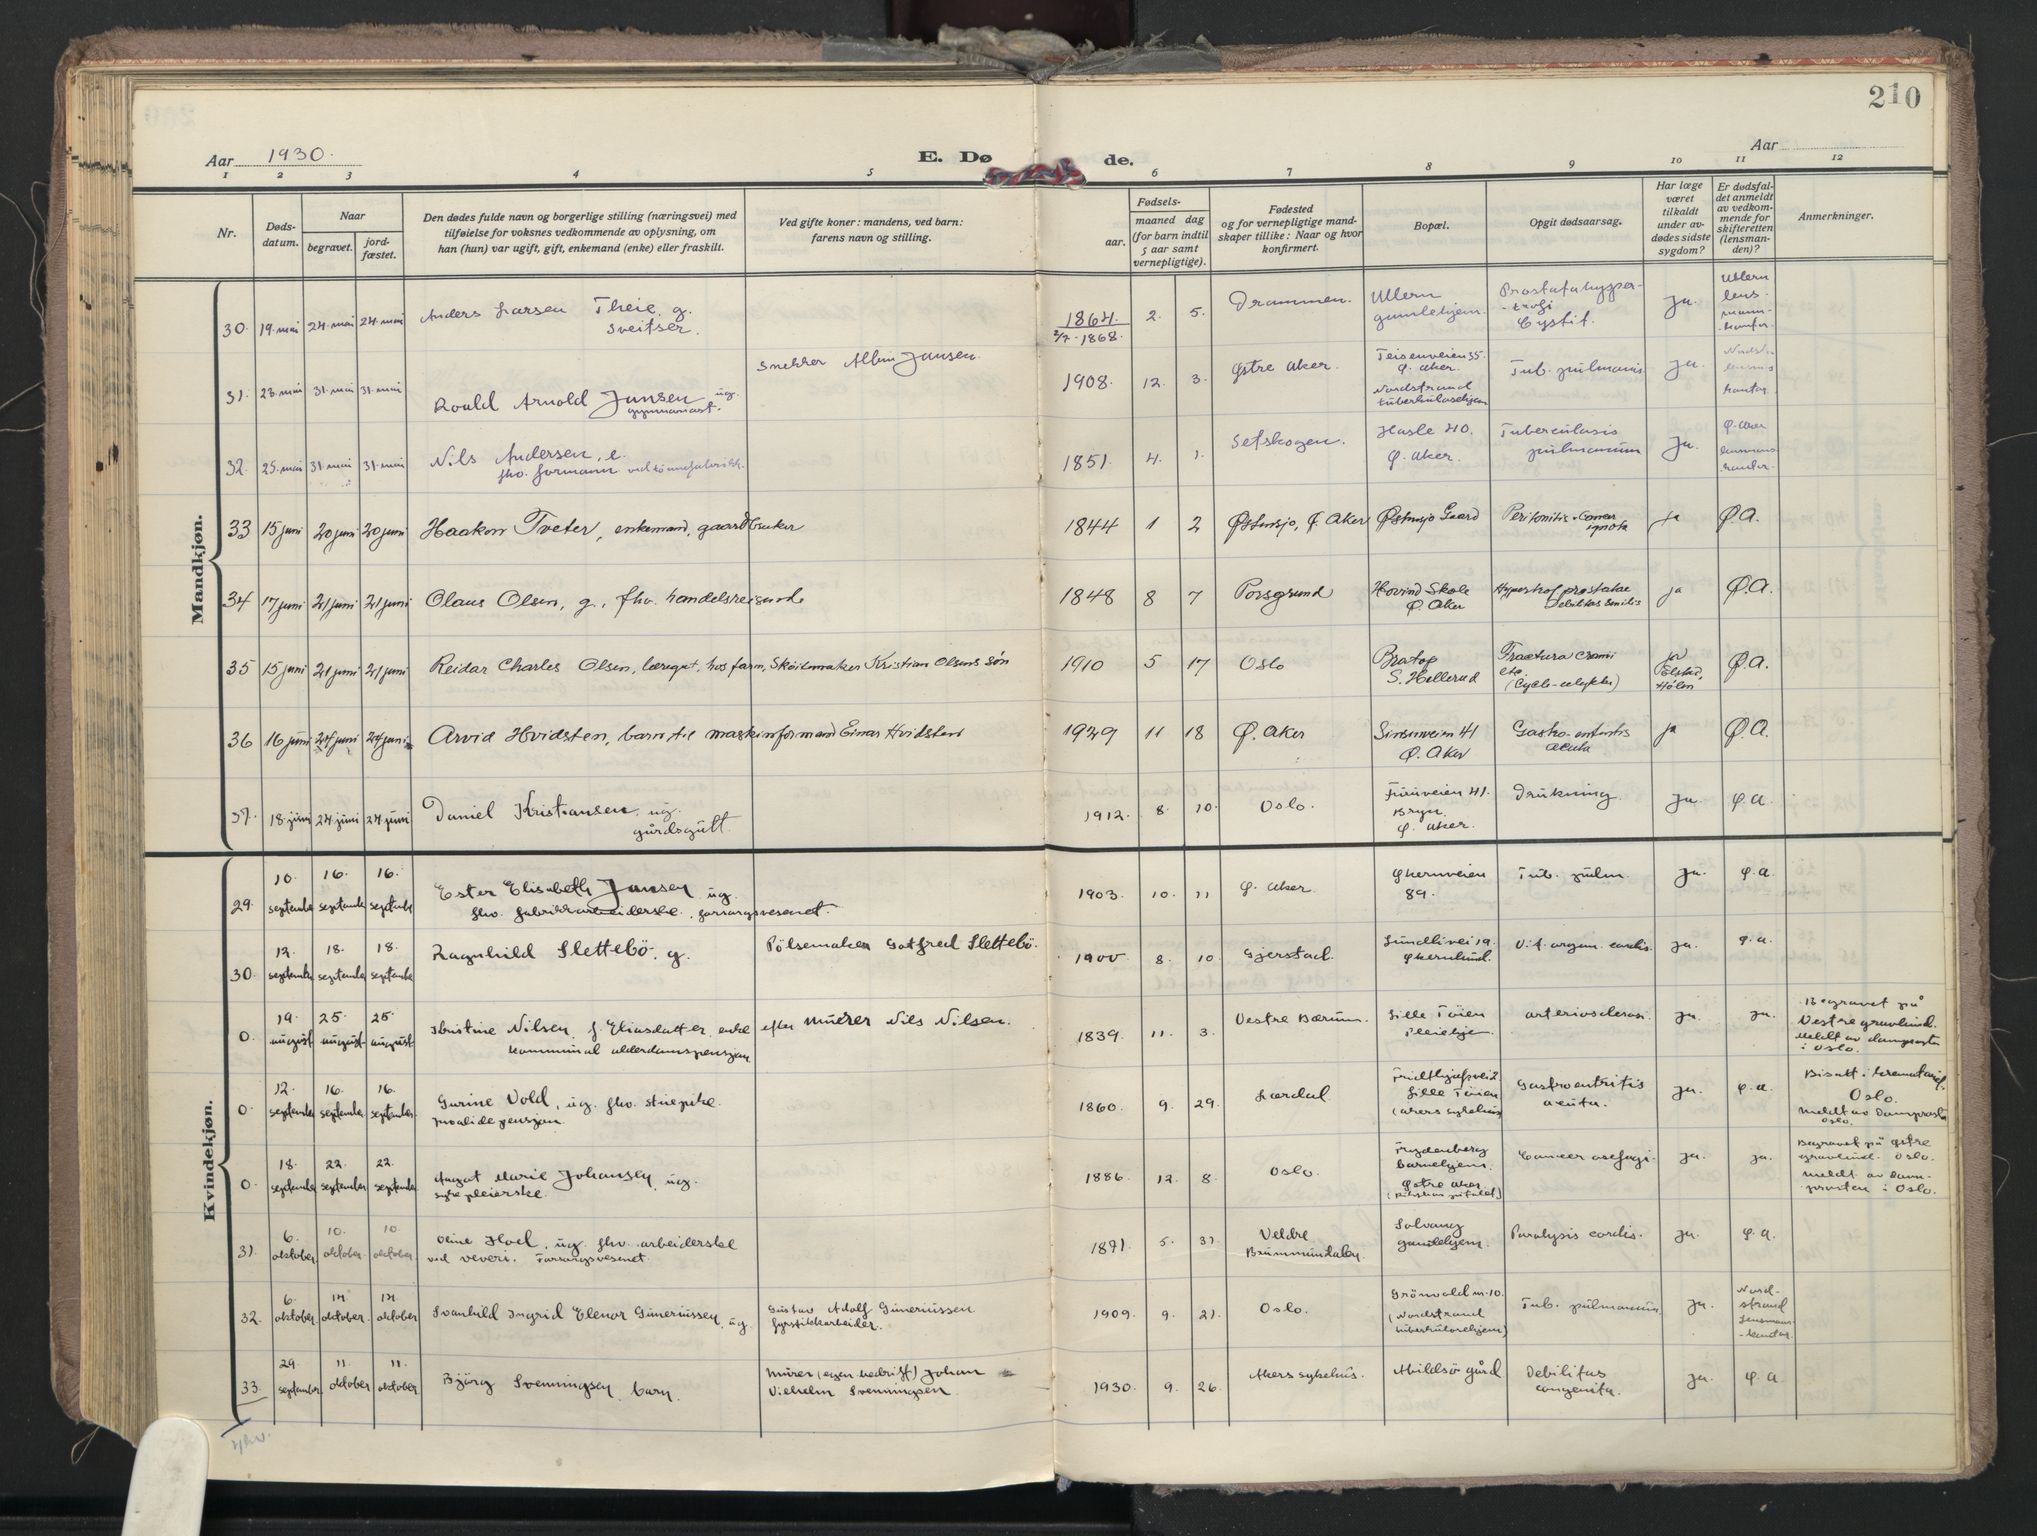 210
Aar 1930.
E. Dø
de.
Aar
1 2 3 4 5 6 7 8 9 10 11 12
Nr.
Døds-
datum.
Naar
begravet.
jord-
fæstet.
Den dødes fulde navn og borgerlige stilling (næringsvei) med
tilføielse for voksnes vedkommende av oplysning, om
han (hun) var ugift, gift, enkemand (enke) eller fraskilt.
Ved gifte koner: mandens, ved barn:
farens navn og stilling.
Fødsels-
aar.
maaned dag
(for barn indtil
5 aar samt
vernepligtige).
Fødested
og for vernepligtige mand-
skaper tillike: Naar og hvor
konfirmert.
Bopæl.
Opgit dødsaarsag.
Har læge
været
tilkaldt
under av-
dødes sidste
sygdom?
Er dødsfal-
det anmeldt
av vedkom-
mende for
skifteretten
(lensman-
den)?
Anmerkninger.
Mandkjøn.
30. 19. mai 24. mai 24. mai Anders Larsen Theie, g.
Sveitser.
1864. 2. 5. Drammen.
2/7-1868.
Ullern
gamlehjem.
Prostatahyper-
trofi
Cystit.
ja.
Ullern
lens-
mann-
kontor.
31. 23. mai 31. mai 31. mai Roald Arnold Jansen ug.
gymnasiast.
Snekker Albin Jansen.
1908. 12. 3. Østre Aker.
Teisenveien 35.
Ø. Aker.
Nordstrand
tuberkulosehjem
Tub. pulmonis
ja.
32. 25. mai 31. mai 31. mai Nils Andersen, e.
fhv. formann ved tønnefabrikk.
1851. 4. 1. Setskogen.
Hasle 40.
Ø. Aker.
Tuberculosis
pulmonum
ja.
Ø. Aker
lensmans-
kontor.
33 15 juni 20 juni 20 juni Haakon Tveter, enkemand, gaardbruker
1844 1 2 Østensjø, Ø. Aker Østensjø Gaard Peritonitis ja Ø.A.
34 17 juni 21 juni 21 juni Olaus Olsen, g., fhv. handelsreisende
1848 8 7 Porsgrund Hovind Skole
Ø. Aker
Hypertrof. prostatae
Debilitas senilis
ja Ø.A.
35 15 juni 21 juni 21 juni Reidar Charles Olsen, læregut, hos farm, Skøitemaker Kristian Olsens søn
1910 5 17 Oslo Bratop
S. Hellerud
Fractura cranii
etc.
(Cycle-ulykke)
ja Ø.A.
36 16 juni 24 juni 24 juni Arvid Hvidsten, barn til maskinformand Einar Hvidsten
1929 11 18 Ø. Aker Sinsenveien 41
Ø. Aker
Gastro-enteritis
acuta
ja Ø.A.
37. 18. juni 24 juni 24 juni Daniel Kristiansen, ug.
gårdsgutt.
1912. 8. 10. Oslo. Furuveien 41.
Bryn.
Ø. Aker.
Drukning. ja. Ø.A.
Kvindekjøn.
29. 10. september 16. september 16. september Ester Elisabeth Jansen ug.
fhv. fabrikkarbeiderske, forsorgsvesenet.
1903. 10. 11 Ø. Aker. Økernveien
89.
Tub. pulm. ja. Ø.A.
30. 12. september 18. september 18. september Ragnhild Slettebö, g. Pölsemaker Gotfred Slettebö.
1900 8. 10. Gjerstad. Lundlivei 19.
Økernlund.
V. t. organ. cordis. ja. Ø.A.
0. 19. august 25. august 25. august Kristine Nilsen f. Eliasdatter, enke efter murer Nils Nilsen.
kommunal alderdomspensjon
1839. 11. 3. Vestre Bærum. Lille Töien
pleiehjem.
arteriosclerosi. ja. ja.
Begravet på
Vestre gravlund.
Meldt av domprosten
i Oslo.
0. 12. september 16. september 16. september Gurine Vold, ug. fhv. strepike.
Invalidepensjon.
1860. 9. 29. Lærdal Fridthjofsvei 2
Lille Töien
(Akers sykehus
Gastroenteritis
acuta.
ja. Ø.A.
Bisatt i krematoriet
Oslo.
Meldt av Domprosten
Oslo.
0. 18. september 22. september 22. september August Marie Johansen, ug.
sykepleierske.
1886. 12. 8. Oslo. Frydenberg
barnehjem.
Østre Aker.
Cancer oesofagi. ja. ja.
Begravet på Østre
gravlund. Oslo.
Meldt av Dom-
prosten i Oslo.
31. 6. oktober 10. oktober 10. oktober Oline Hoel, ug. fhv. arbeiderske
ved veveri. Forsorgsvesenet.
1871. 5. 31. Veldre
Brummundalen
Solvang
gamlehjem.
Paralysis cordis. ja. Ø.A.
32. 6. oktober. 14. oktober. 14. oktober Svanhild Ingrid Elenor Gunerius­sen, ug. Gustav Adolf Guneriussen
fyrstikkarbeider.
1909. 9. 21. Oslo. Grönvold nr. 10.
(Nordstrand
tuberkulosehjem)
Tub. pulmonum. ja.
Nord-
strand
lensmans-
kontor.
33. 29. september 11. oktober 11. oktober Bjørg Svenningsen, barn. Murer (egen bedrift) Johan
Vilhelm Svenningsen.
1930. 9. 26. Akers sykehus. Abildsö gård Debilitas
congenita.
ja. Ø.A.